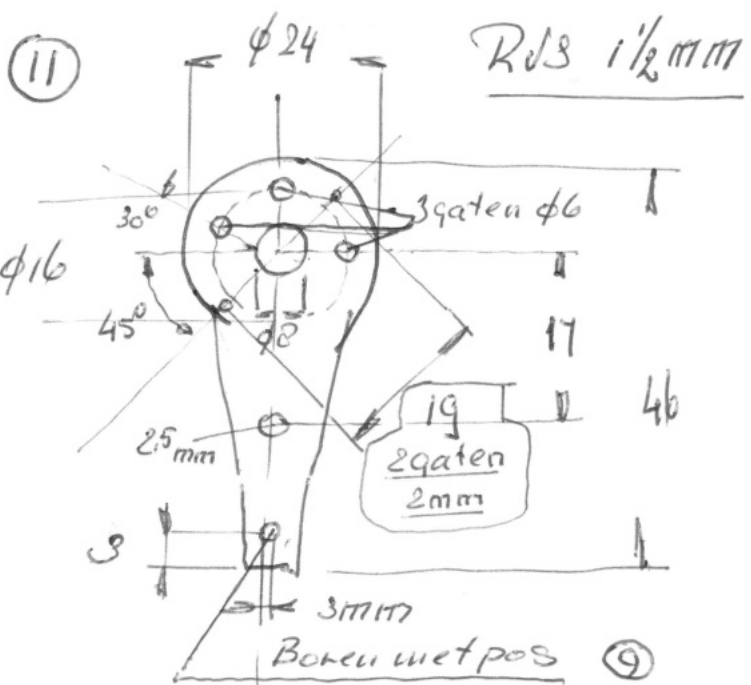 11
ϕ24
RVS 1½ mm
6
30°
3 gaten ϕ6
ϕ16
45°
ϕ8
17
46
2.5 mm
19
2 gaten
2mm
3
3mm
Boren met pos 9